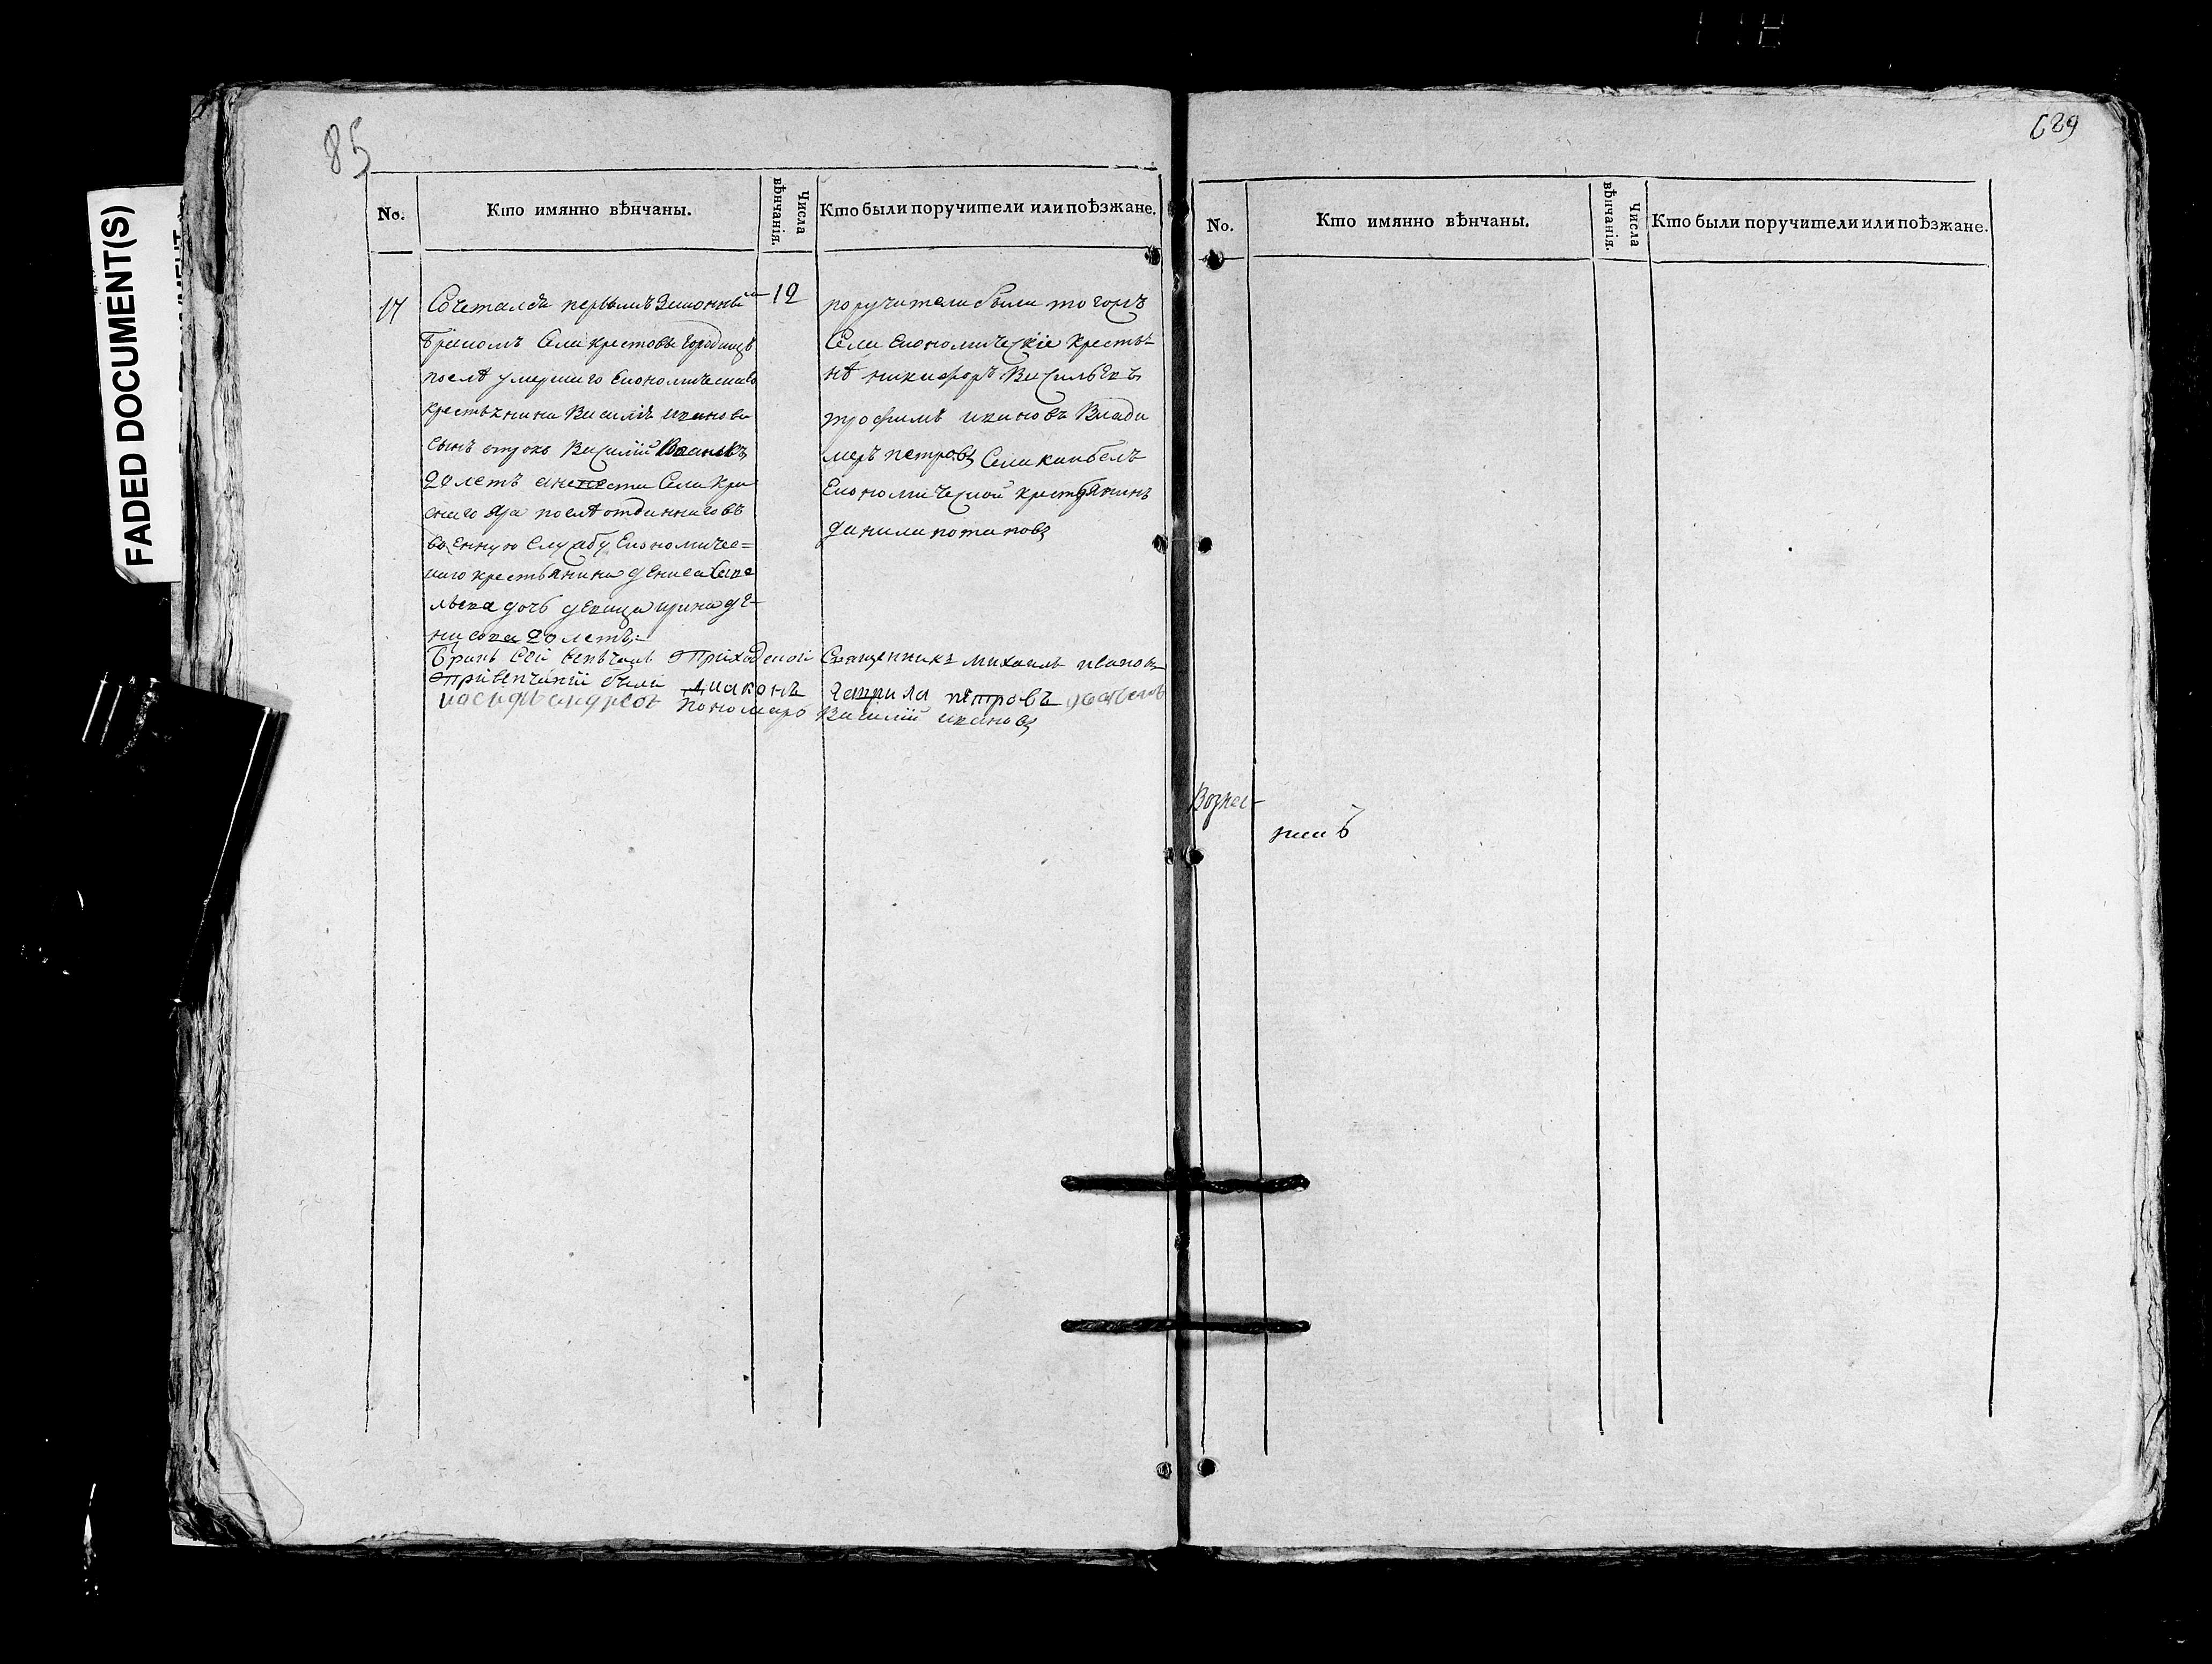 FADED DOCUMENT(S)
85
No.
Кто имянно вѣнчаны.
Числа вѣнчанія.
Кто были поручители или поѣзжане.
17
Сочетался первымъ Законны
бракомъ Села Крестовъ Городищъ
послѣ умершаго Економическаго
крестьянина Василья иванова
сынъ отрокъ Василий Васильевъ
20 летъ снетъ Села Кра
снаго Яра послѣ отданнаго въ
военную Службу Економичес=
каго крестьянина Дениса Саве
льева дочь девица ирина де-
нисова 20 летъ:-
12
поручители были того жъ
Села Економическіе Крестья-
нѣ никифоръ Васильевъ
трофимъ ивановъ Влади
меръ петровъ Села
Економической крестьянинъ
данила потаповъ
Бракъ Сей венчалъ Приходской Священникъ михаилъ ивановъ
При венчаніи были Диаконъ Гаврила петровъ
Пономарь Василий ивановъ
629
No.
Кто имянно вѣнчаны.
Числа вѣнчанія.
Кто были поручители или поѣзжане.
Вознес-